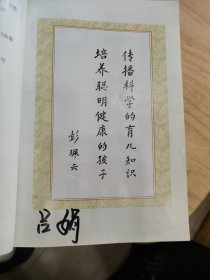 传播科学的育儿知识
培养聪明健康的孩子
彭珮云
吕娟